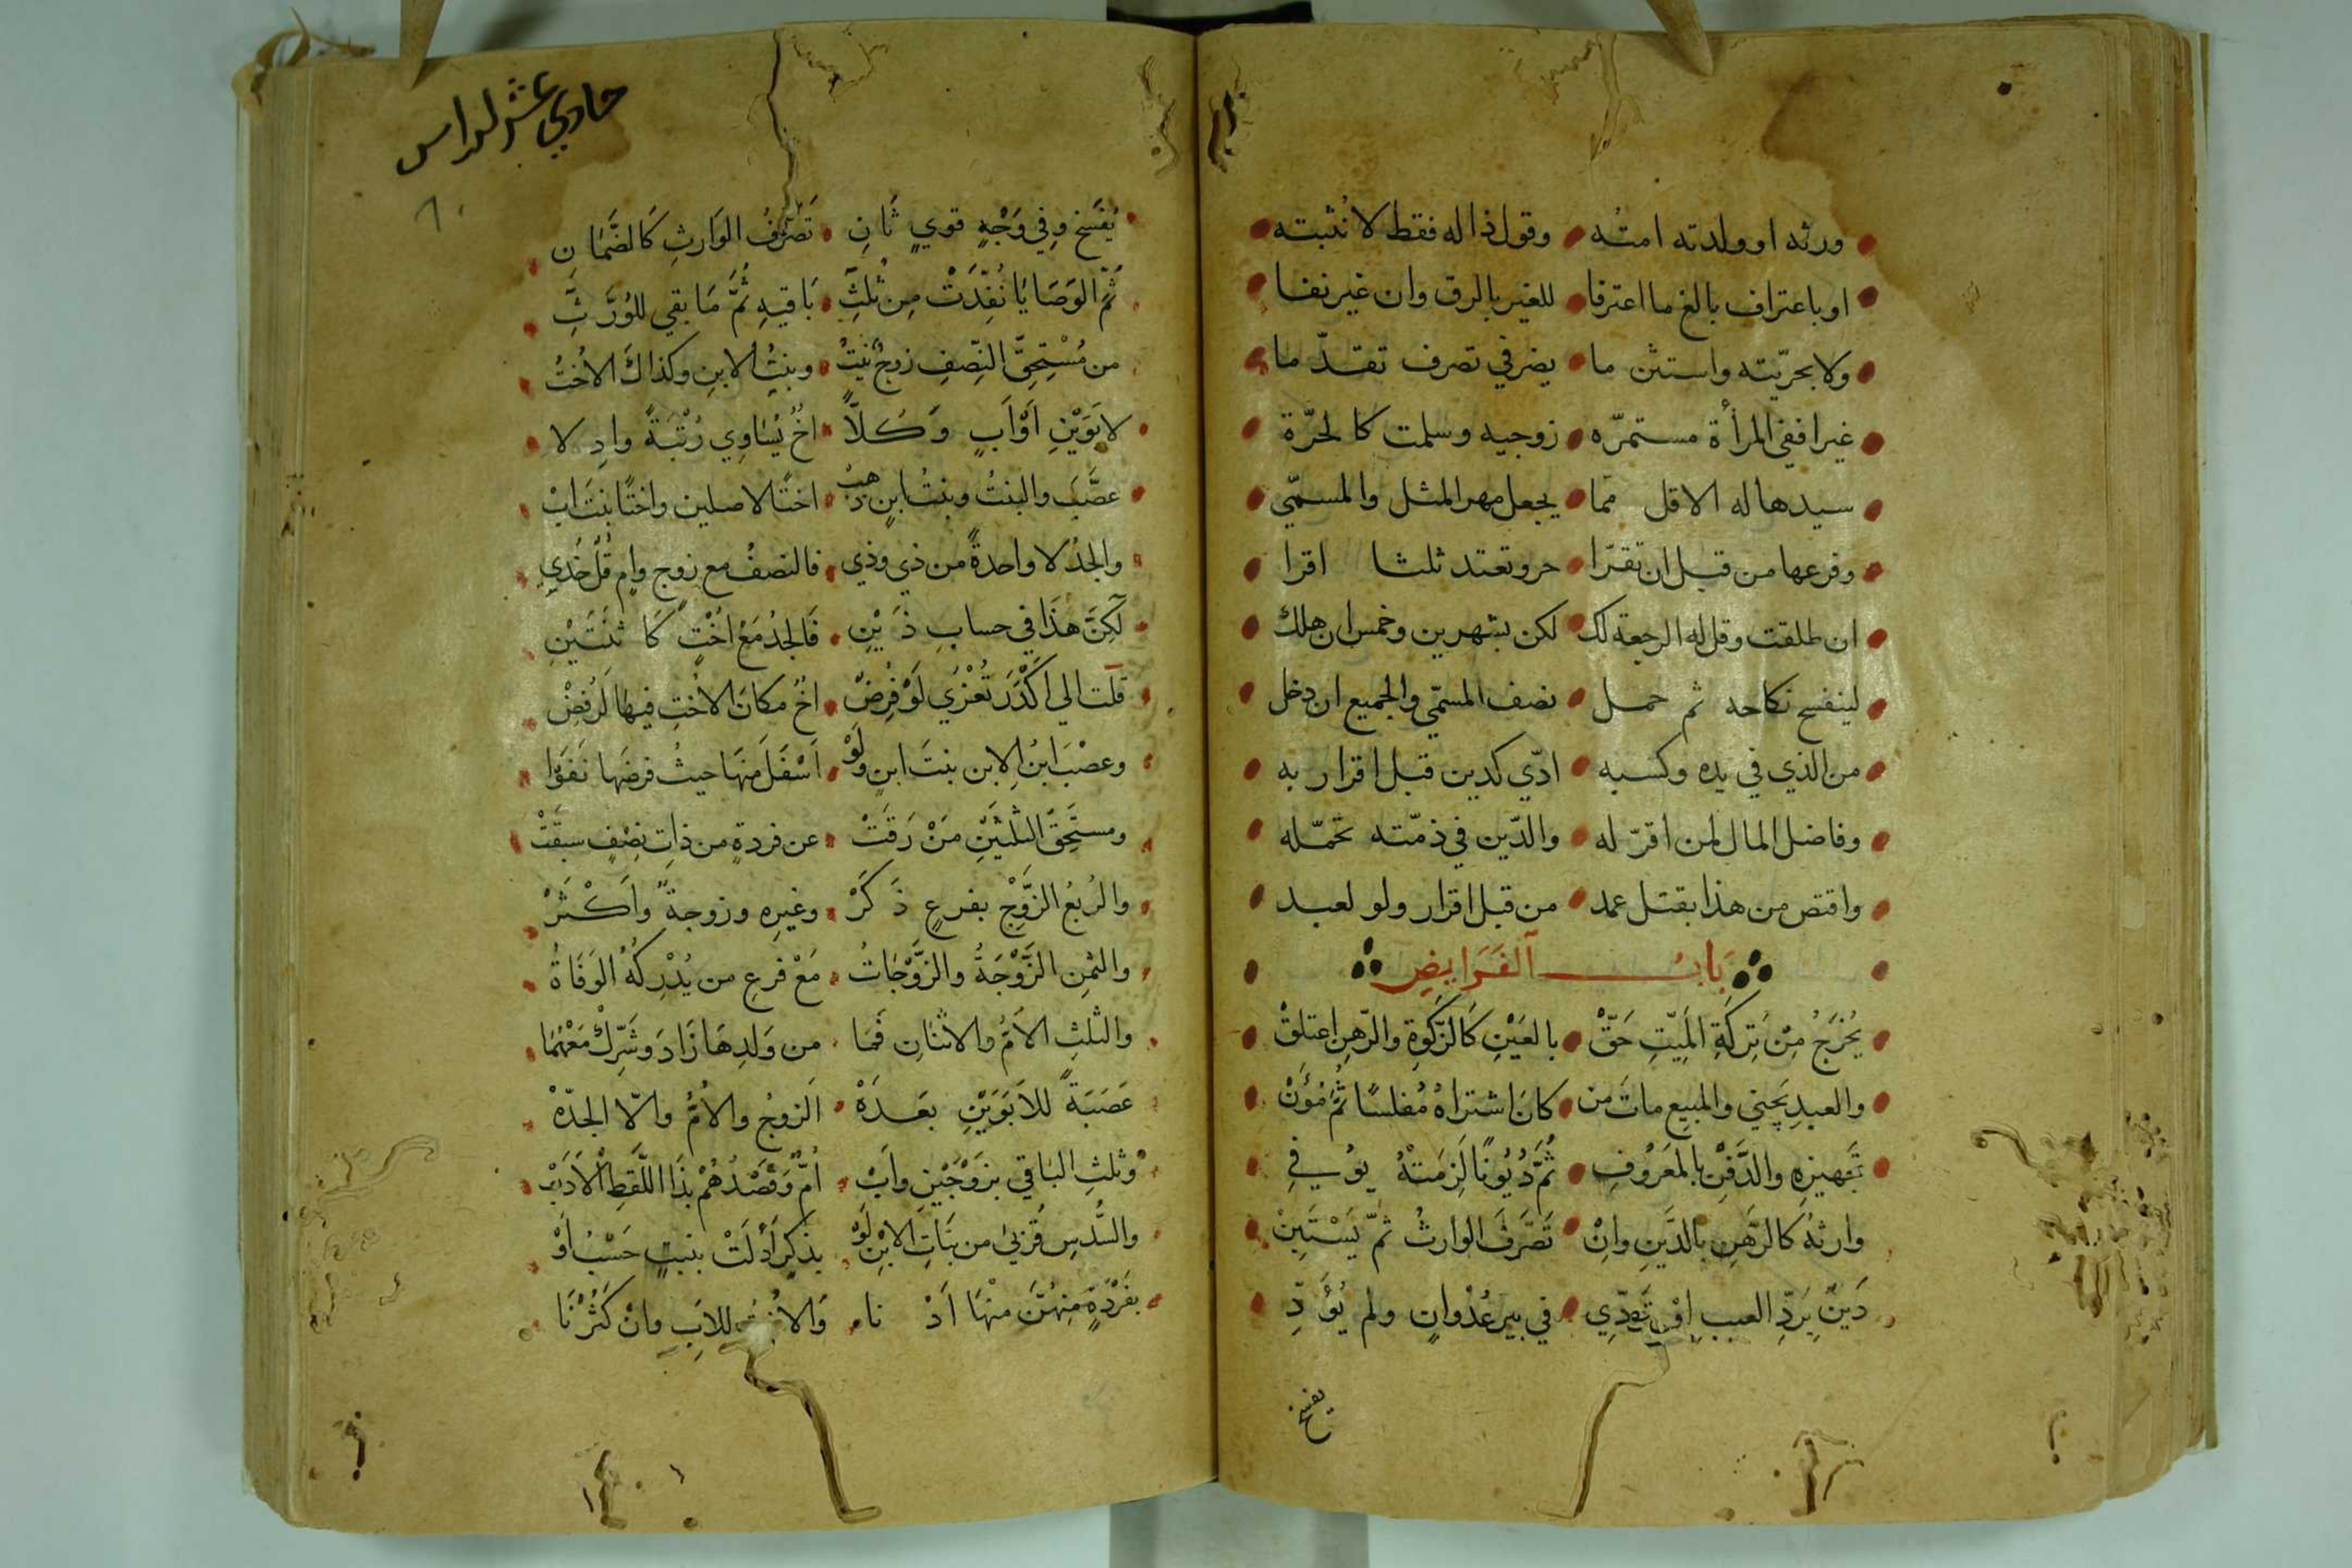 ورثه او ولدته امته وقول ذا له فقط لا نثبته
او باعتراف بالغ ما اعترفا للغير بالرق وان غير نفا
ولا بحريّته واستثن ما يضر في تصرف تقدّ ما
غيرا ففي المرأة مستمرّه زوجيه وسلمت كالحرّة
سيدها له الاقل ممّا يجعل مهر المثل والمسمّي
وفرعها من قبل ان تقرّا حر وتعتد ثلثا اقرا
ان طلقت وقل له الرجعة لك لكن بشهرين وخمس ان هلك
لينفسخ نكاحه ثم حمل نصف المسمّي والجميع ان دخل
من الذي في يده وكسبه ادّي كدين قبل اقرار به
وفاضل المال لمن اقرّ له والدّين في ذمّته تحمّله
واقتص من هذا بقتل عمد من قبل اقرار ولو لعبد
بَابُ الفَرَايِضِ
يُخْرَجُ مِنْ تِرِكَةِ المَيِّتِ حَقّْ بالعَيْنِ كَالزَّكَوةِ والرّهنِ اعتلقْ
والعبدِ يَجني والمبيعِ ماتَ من كانَ اشتراهُ مُفلسًا ثُمَّ مُؤَنْ
تجهيزِه والدَّفنِ بالمعَرُوفِ ثُمَّ دُيُونًا لَزِمَتْهُ يُوْ في
وارثهُ كالرَّهنِ بالدَّينِ وانْ تَصَرَّفَ الوارثُ ثمّ يَسْتَبِنْ
دَينٌ بِرَدِّ العيبِ اوْ تَردِّي في بيرِ عُدْوانٍ ولم يُؤَ دِّ
يفسخ
حادي عشر لرداس
يُفسَخ وفي وَجْهٍ قويٍ ثَانِ تَصَرُّفُ الوَارثِ كَالضَّمَانِ
ثُمَّ الوَصَايَا نُفِّذَتْ مِن ثُلثِ بَاقيهِ ثُمَّ مَا بقي للوُرَّثِ
من مُسْتَحِقِّ النِّصفِ زوجٌ بنتُ وبنتُ الابنِ وكذاكَ الاُختُ
لابَوَيْنِ اَوْ اَبٍ وَكُلاًّ اخٌ يُسَاوِي رُتْبَةً وادِ لا
عصَّبَ والبنتُ وبنتُ ابنٍ دهبْ اختًا لاصلين واختًا بنتَ ابْ
والجدُّ لا واحدةً من ذي وذي فالنصفُ مع زوجٍ وامٍ قُلْ خُذِي
لكِنَّ هذَا في حسابِ ذَ يْنِ فَالجدُ مَعْ اُخْتٍ كَا ثنَتَيْنِ
قلت الي اَكْدَرَ تُعْزَي لَوْ فُرِضْ اخٌ مكانَ الاُختِ فيهَا لَرُفِضْ
وعصْبَ ابنُ الابن بنتَ ابنٍ ولَوْ اَسْفَلَ منهَا حيثُ فرضَها نَفَوْا
ومستَحِقُّ الثُّلثَيْنِ مَنْ رَقَتْ عن فردةٍ من ذاتِ نِصْفٍ سبقَتْ
والرُبعُ الزَّوْجُ بفرعٍ ذَ كَرْ وغيرِه وزوجةٌ وَاَكْثَرْ
والثمنِ الزَّوْجَةُ والزَّوْجَاتُ مَعْ فرعِ من يُدْرِكُهُ الوَفَاةُ
والثلثِ الاُمُّ والاثنَانِ فمَا من وَلدِهَا زَادَ وَشَرِّكْ مَعْهُمَا
عَصَبَةً للاَبَوَيْنِ بعَدَهْ الزوجُ والاُمُّ والاّ الجدّهْ
وثلثِ البَاقي بزَوْجَيْنِ واَبْ اُمٌّ وَقَصْدُهُمْ بذَا اللَّفظِ الْاَدَبْ
والسُّدسِ قُرْبىٰ من بنَاتِ الابْنِ لَوْ بذكرٍ اَدْلَتْ بنتٍ حَسْبُ اَوْ
بفَرْدَةٍ مِنهُنَّ منْهَا اَدْ نا وَالاُختُ للاَبِ وانْ كَثُرْنَا